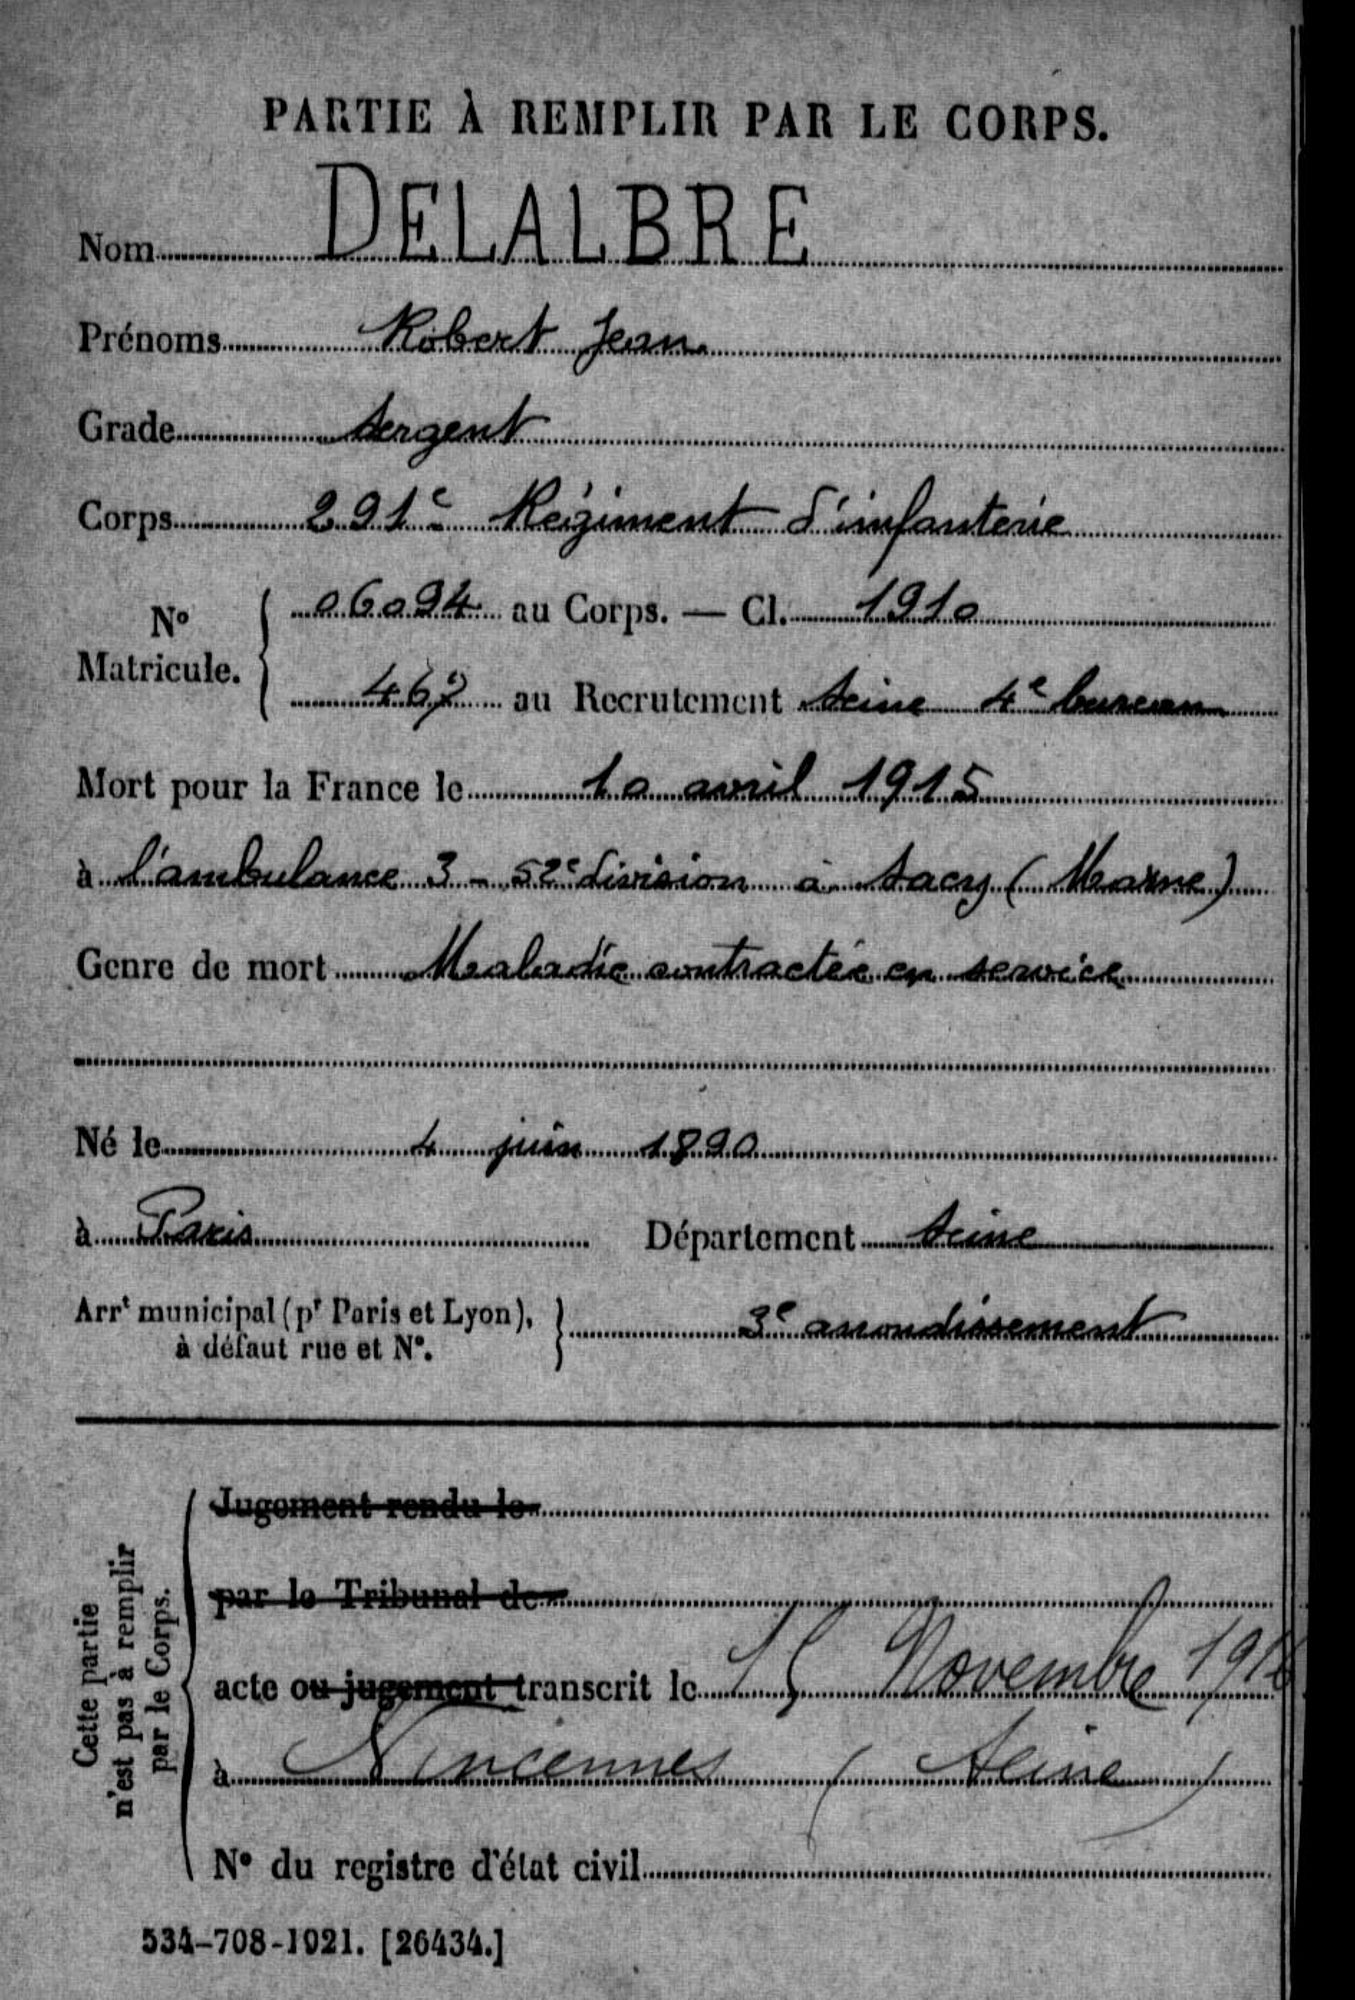 PARTIE À REMPLIR PAR LE CORPS.
Nom DELALBRE
Prénoms Robert Jean
Grade Sergent
Corps 291e Régiment d'infanterie
No Matricule. 06094 au Corps. — Cl. 1910
467 au Recrutement Seine 4e bureau
Mort pour la France le 10 avril 1915
à l'ambulance 3 - 52e division à Sacy (Marne)
Genre de mort Maladie contractée en service
Né le 4 juin 1890
à Paris Département Seine
Arrt municipal (pr Paris et Lyon), à défaut rue et No. 3e arrondissement
Cette partie n'est pas à remplir par le Corps.
Jugement rendu le
par le Tribunal de
acte ou jugement transcrit le 15 Novembre
à Vincennes (Seine)
No du registre d'état civil
534-708-1921. [26434.]